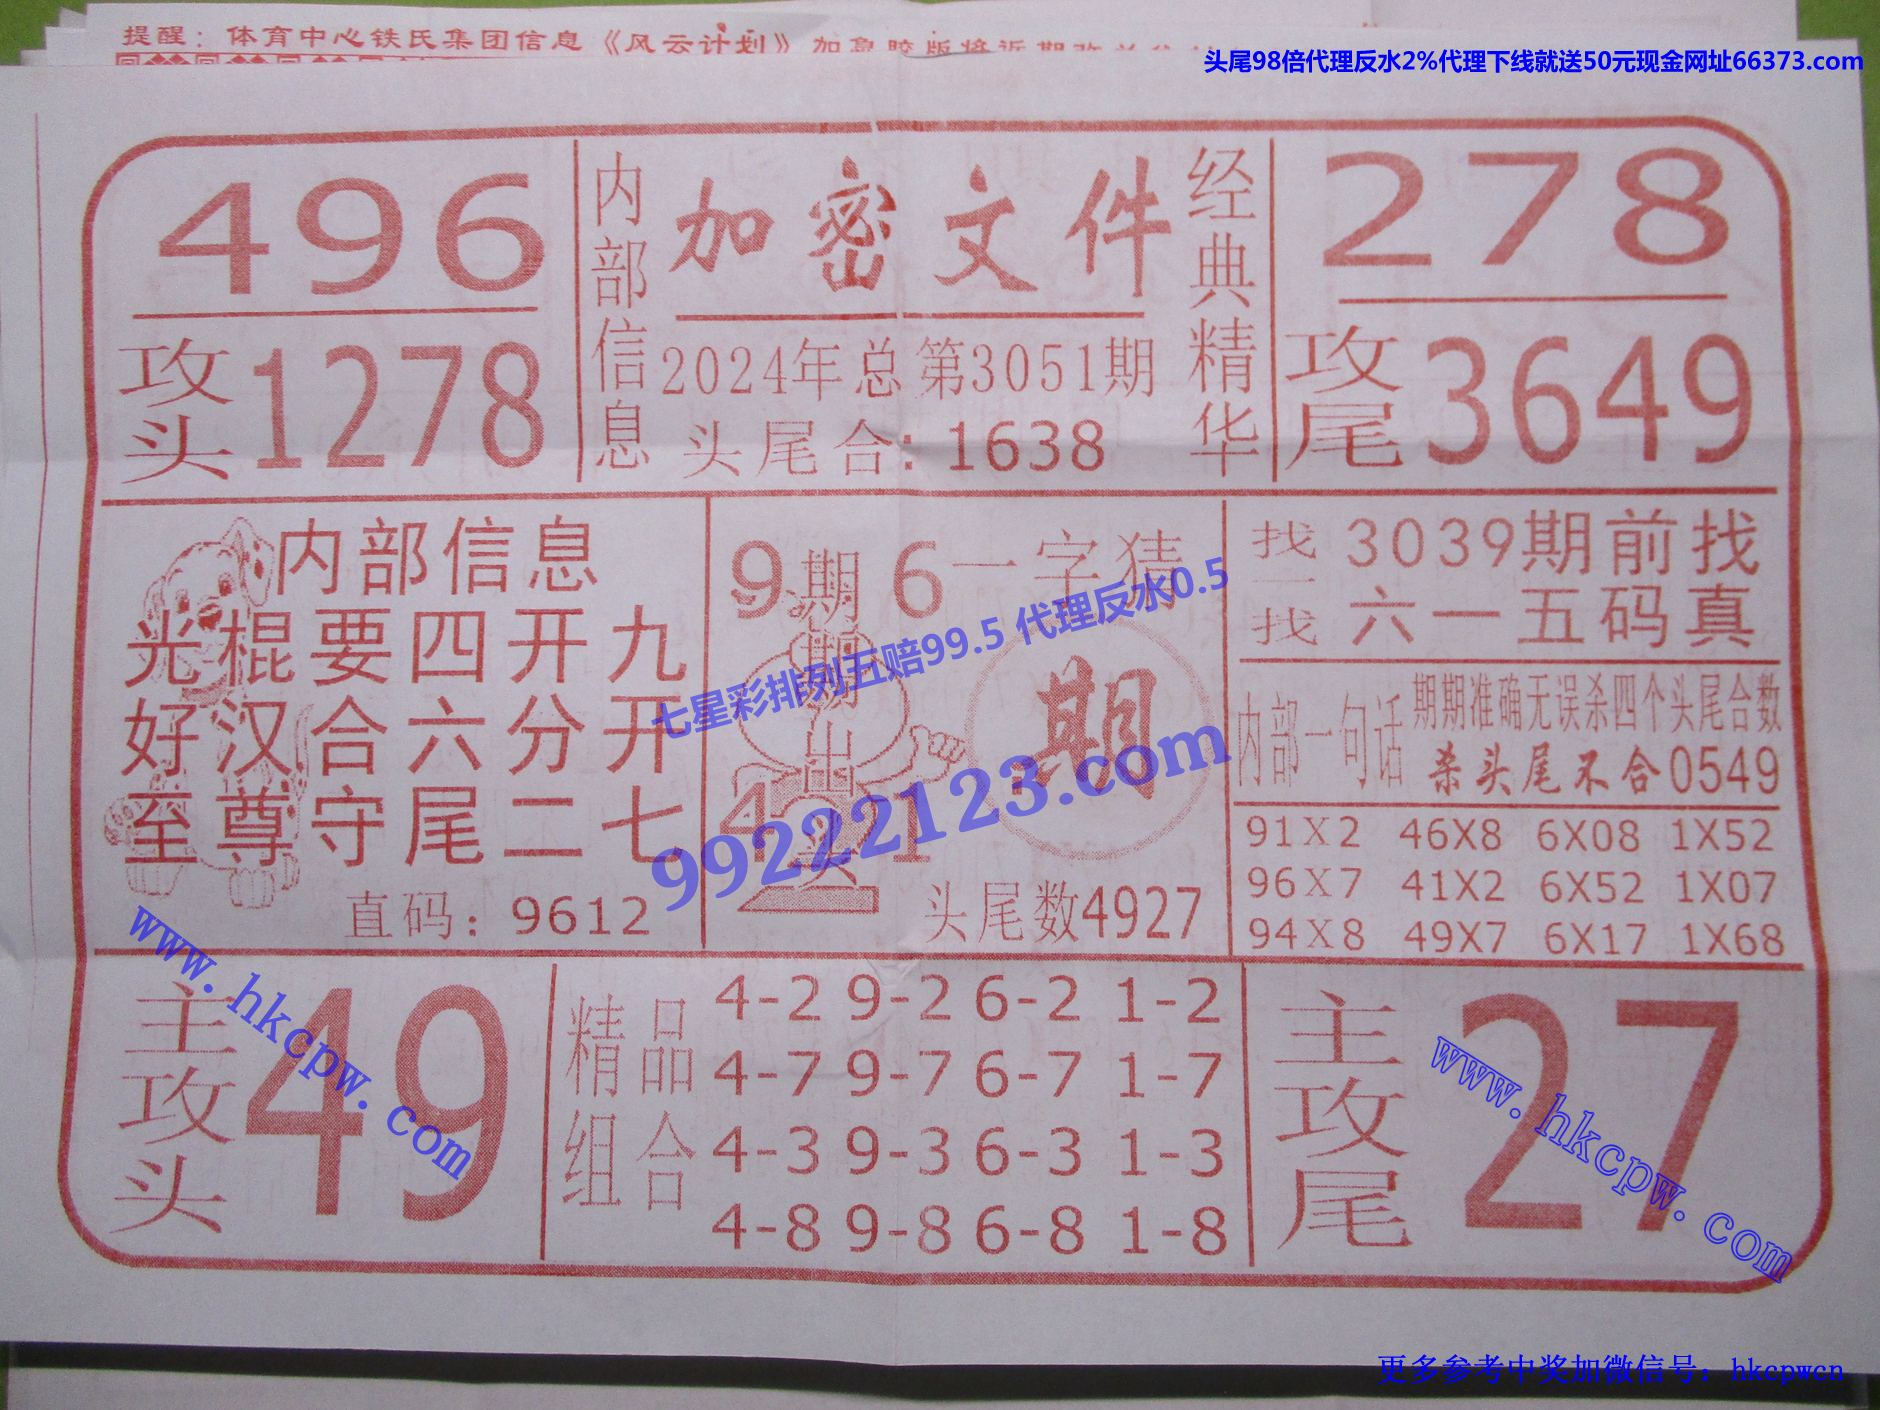 提醒：体育中心铁氏集团信息《风云计划》加急胶版将近期改
头尾98倍代理反水2%代理下线就送50元现金网址66373.com
496
攻头1278
内部信息
加密文件
2024年总第3051期
头尾合:1638
经典精华
278
攻尾3649
内部信息
光棍要四开九
好汉合六分开
至尊守尾二七
直码：9612
9 6
期期出2头
4 1
一字猜
期
头尾数4927
找一找
3039期前找
六一五码真
内部一句话
期期准确无误杀四个头尾合数
杀头尾不合0549
91X2 46X8 6X08 1X52
96X7 41X2 6X52 1X07
94X8 49X7 6X17 1X68
七星彩排列五赔99.5 代理反水0.5
99222123.com
主攻头49
精品组合
4-2 9-2 6-2 1-2
4-7 9-7 6-7 1-7
4-3 9-3 6-3 1-3
4-8 9-8 6-8 1-8
主攻尾27
www.hkcpw.com
www.hkcpw.com
更多参考中奖加微信号：hkcpwcn